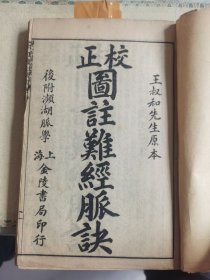 校正
圖註難經脈訣
王叔和先生原本
後附瀕湖脈學
上海
金陵書局印行